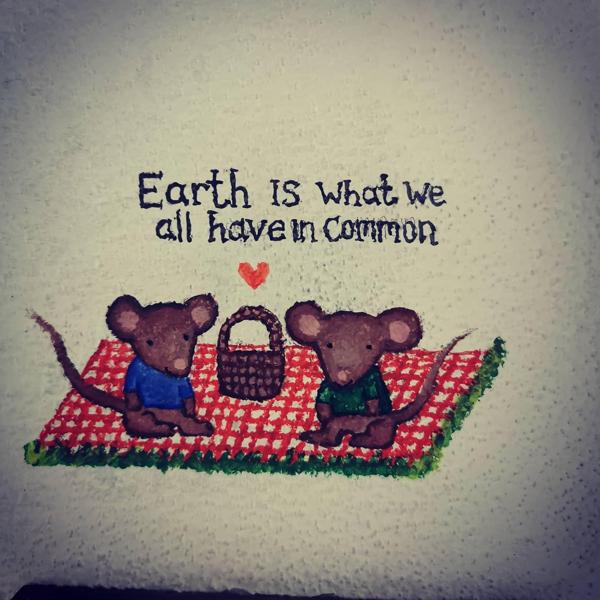 Earth is what we
all have in common